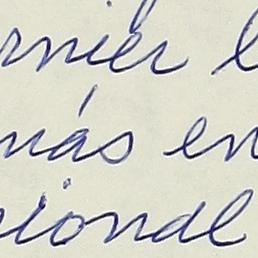 rnier l
más en
cional